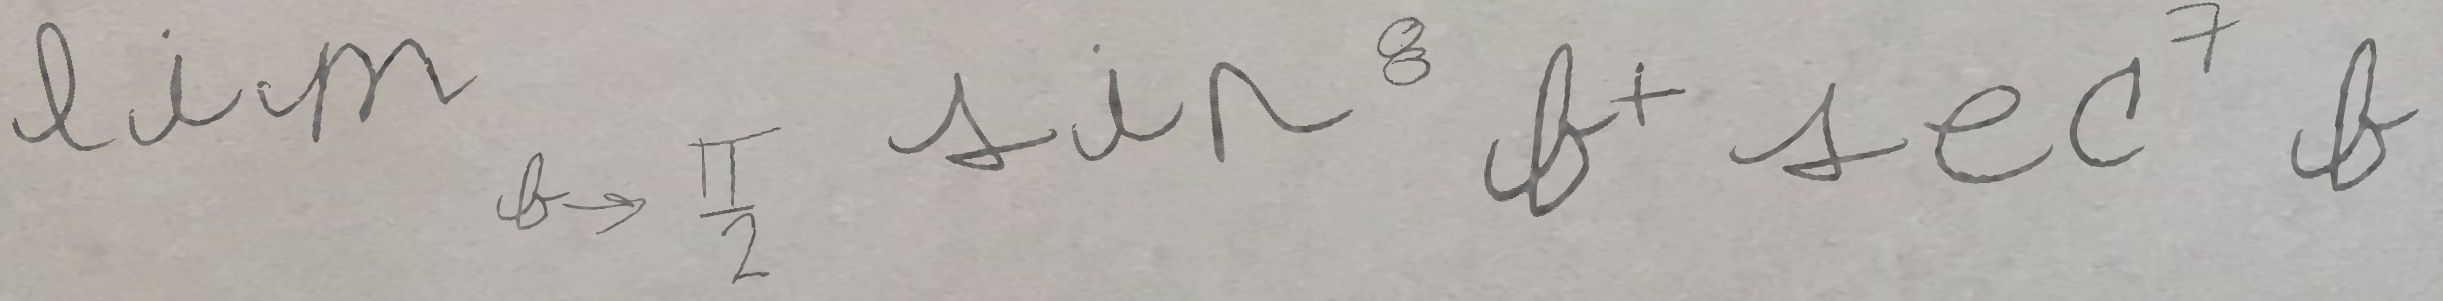 lim_{b→\frac{π}{2}} sin^8 b + sec^7 b